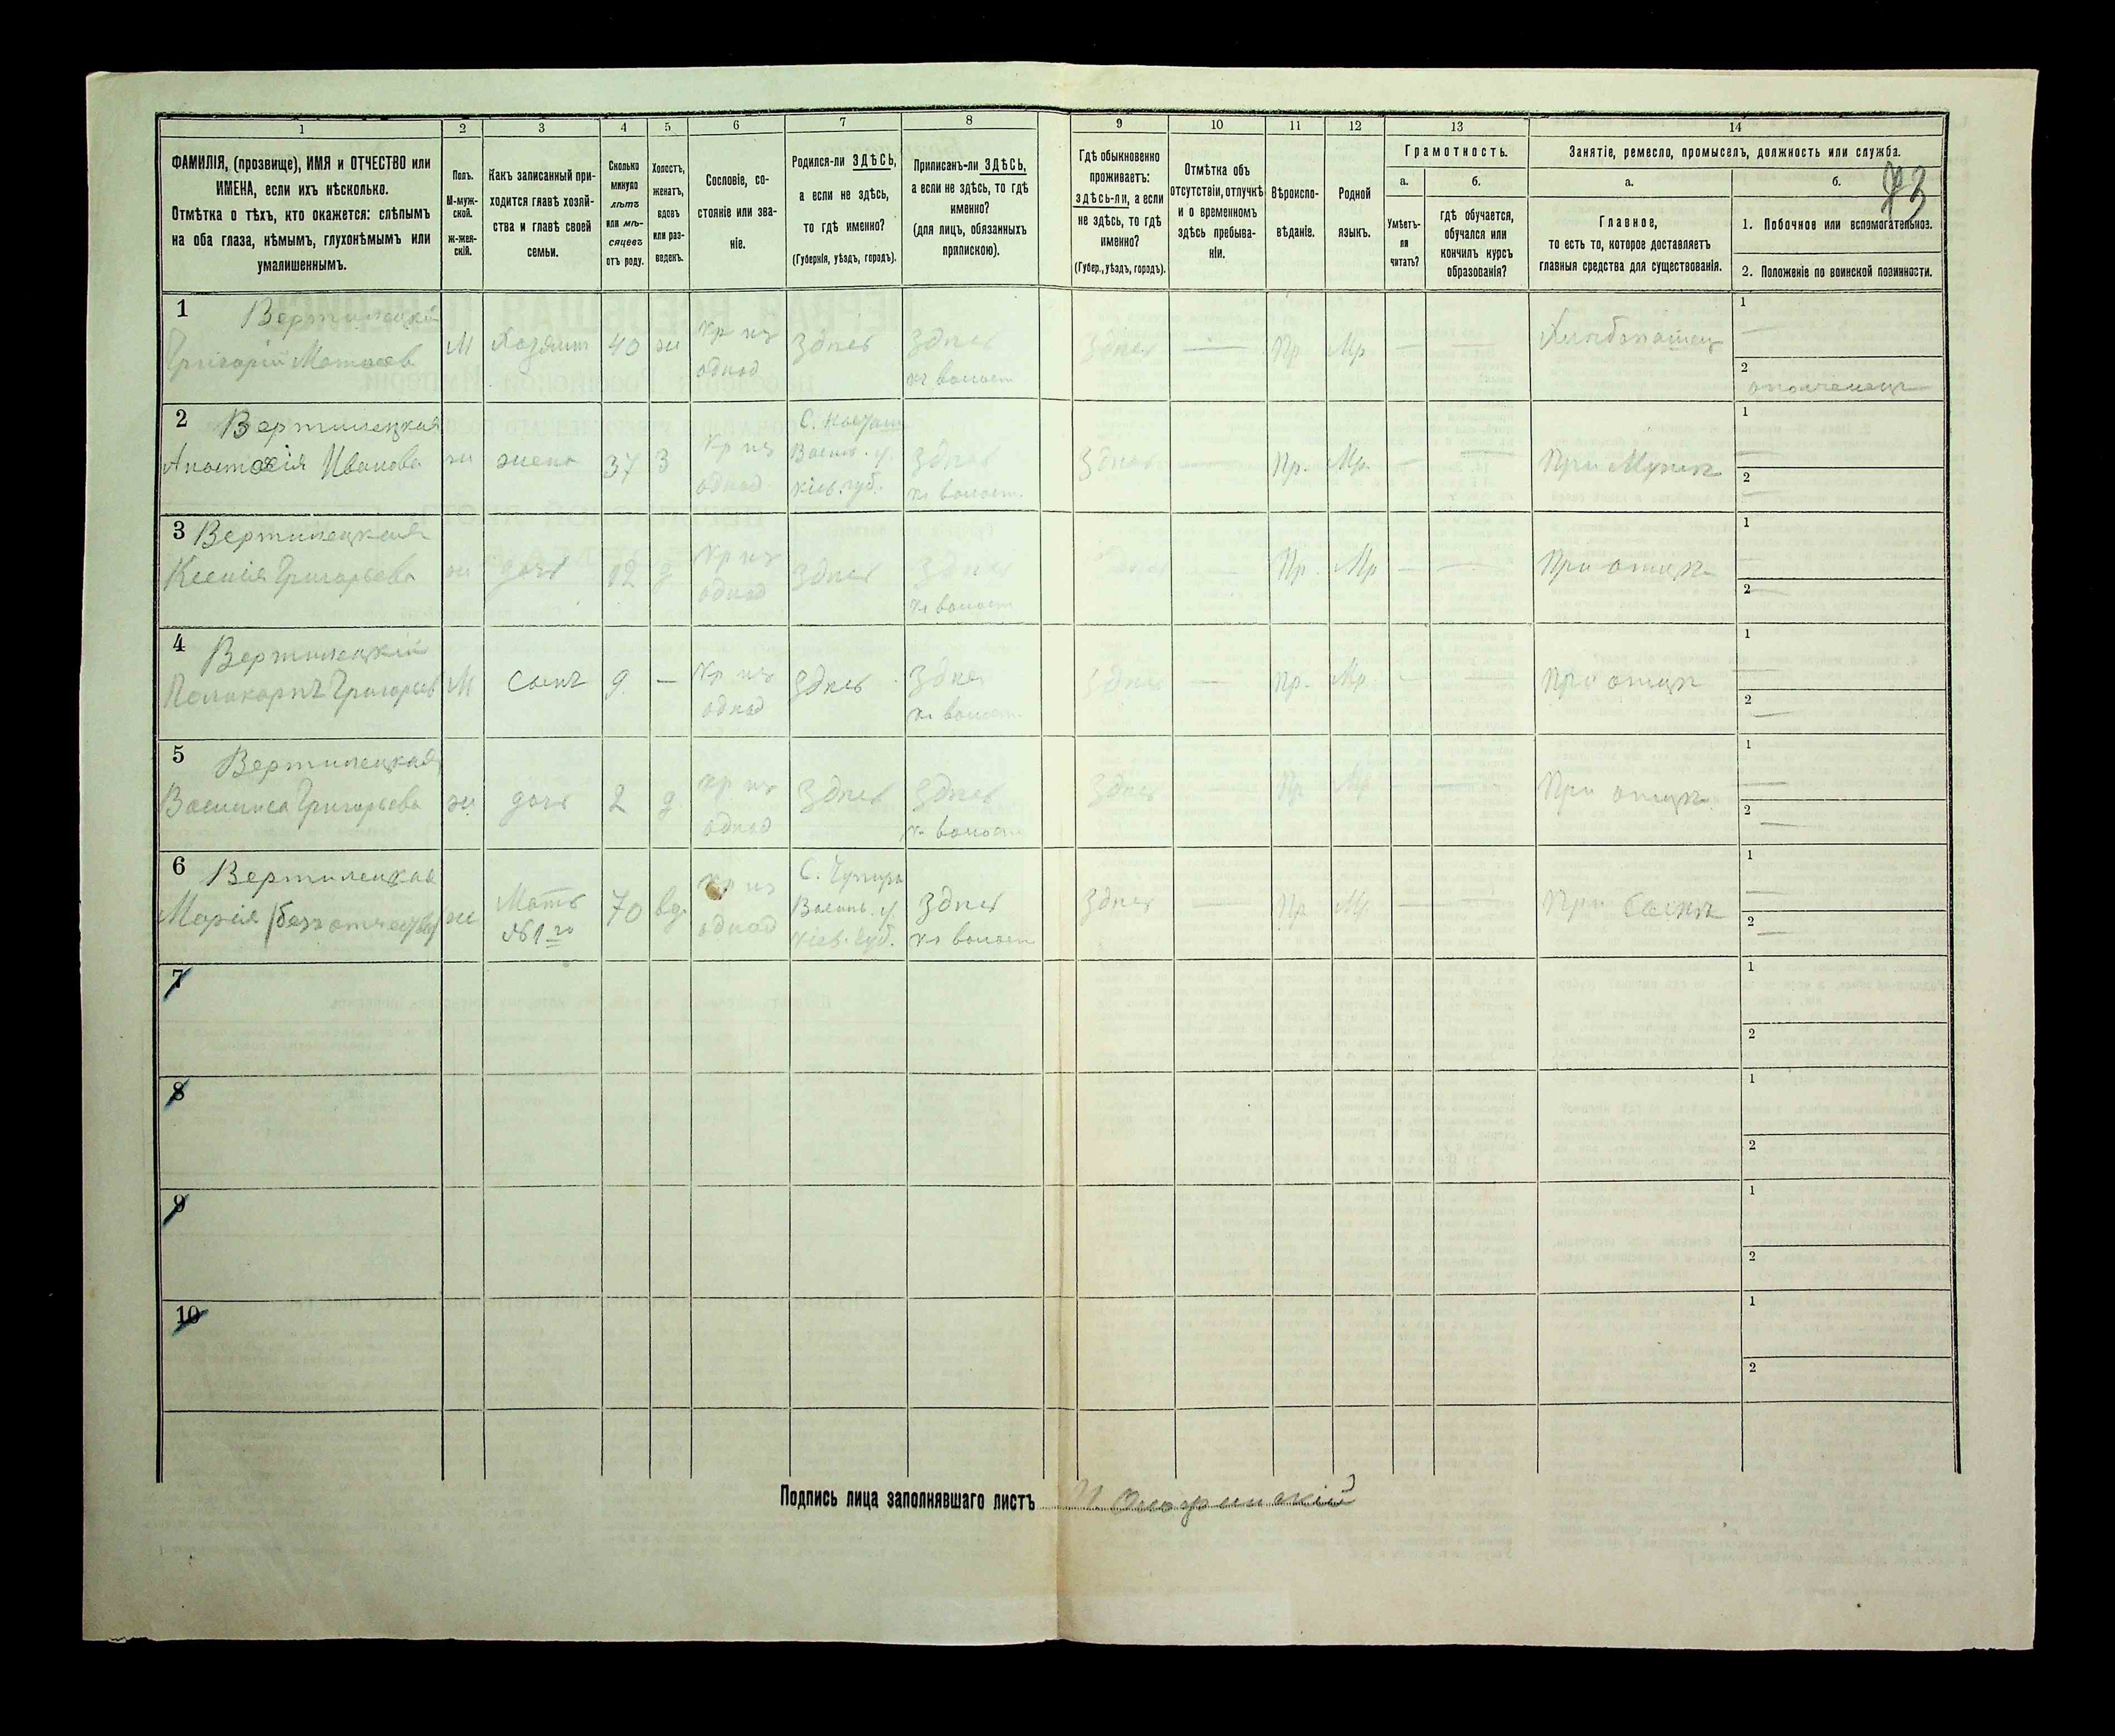 1 2 3 4 5 6 7 8 9 10 11 12 13 14
ФАМИЛІЯ, (прозвище), ИМЯ и ОТЧЕСТВО или
ИМЕНА, если ихъ нѣсколько.
Отмѣтка о тѣхъ, кто окажется: слѣпымъ
на оба глаза, нѣмымъ, глухонѣмымъ или
умалишеннымъ.
Полъ.
М-муж-
ской.
ж-жен-
скій.
Какъ записанный при-
ходится главѣ хозяй-
ства и главѣ своей
семьи.
Сколько
минуло
лѣтъ
или мѣ-
сяцевъ
отъ роду.
Холостъ,
женатъ,
вдовъ
или раз-
веденъ.
Сословіе, со-
стояніе или зва-
ніе.
Родился-ли ЗДѢСЬ,
а если не здѣсь,
то гдѣ именно?
(Губернія, уѣздъ, городъ).
Приписанъ-ли ЗДѢСЬ,
а если не здѣсь, то гдѣ
именно?
(для лицъ, обязанныхъ
припискою).
Гдѣ обыкновенно
проживаетъ:
здѣсь-ли, а если
не здѣсь, то гдѣ
именно?
(Губер., уѣздъ, городъ).
Отмѣтка объ
отсутствіи, отлучкѣ
и о временномъ
здѣсь пребыва-
ніи.
Вѣроиспо-
вѣданіе.
Родной
языкъ.
Грамотность.
а.
Умѣетъ-
ли
читать?
б.
гдѣ обучается,
обучался или
кончилъ курсъ
образованія?
Занятіе, ремесло, промыселъ, должность или служба.
а.
Главное,
то есть то, которое доставляетъ
главныя средства для существованія.
б.
1. Побочное или вспомогательное.
2. Положеніе по воинской повинности.
1 Вертилецкій
Григорій Матвеев М Хозяинъ 40 ж Кр из однод Здесь Здесь къ волост Здесь — Пр Мр — — Хлебопашец 1 — 2 ополченецъ
2 Вертилецкая
Анастасія Иванова ж жена 37 З Кр из однод Васильк. у. Кіев. губ. Здесь къ волост. Здесь — Пр. Мр. — — При Мужѣ 1 — 2 —
3 Вертилецкая
Ксенія Григорьева ж дочь 12 д Кр из однод Здесь Здесь къ волост Здесь — Пр. Мр — — При отцѣ 1 — 2 —
4 Вертилецкій
Поликарпъ Григорьев М Сынъ 9 — Кр из однод Здесь Здесь къ волост Здесь — Пр. Мр. — — При отцѣ 1 — 2 —
5 Вертилецкая
Василиса Григорьева ж дочь 2 д Кр из однод Здесь Здесь къ волост Здесь — Пр Мр — — При отцѣ 1 — 2 —
6 Вертилецкая
Марія (безъ отчества) ж Мать №1го 70 вд. Кр из однод Васильк. у. Кіев. Губ. Здесь къ волост Здесь — Пр Мр. — — При Сынѣ 1 — 2 —
7 1 2
8 1 2
9 1 2
10 1 2
Подпись лица заполнявшаго листъ